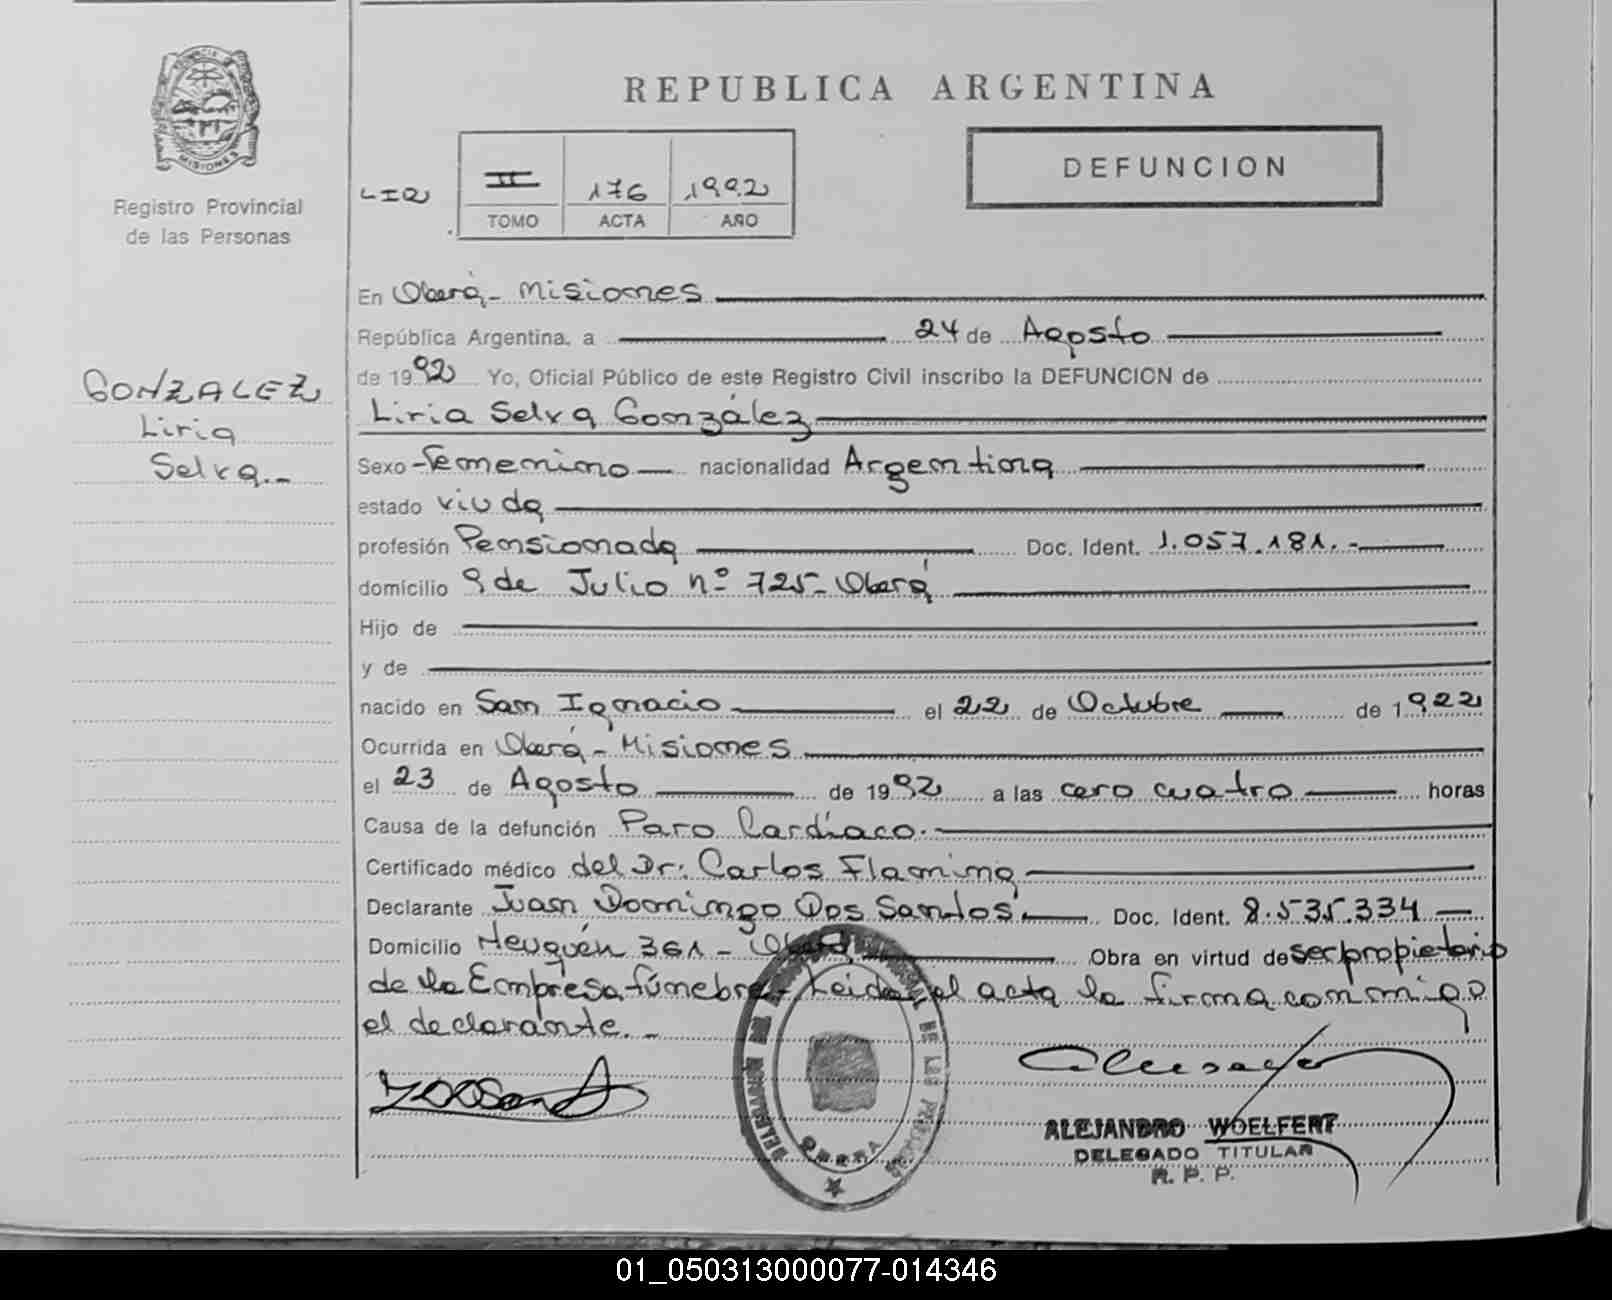 REPUBLICA ARGENTINA
PROVINCIA DE
MISIONES
Registro Provincial
de las Personas
LIQ
II 176 1992
TOMO ACTA AÑO
DEFUNCION
GONZALEZ
Liria
Selva.-
En Oberá - Misiones
República Argentina, a 24 de Agosto
de 1992 Yo, Oficial Público de este Registro Civil inscribo la DEFUNCION de
Liria Selva González
Sexo Femenino nacionalidad Argentina
estado viuda
profesión Pensionada Doc. Ident. 1.057.181.-
domicilio 9 de Julio nº 725 - Oberá
Hijo de
y de
nacido en San Ignacio el 22 de Octubre de 1922
Ocurrida en Oberá - Misiones
el 23 de Agosto de 1992 a las cero cuatro horas
Causa de la defunción Paro Cardíaco.-
Certificado médico del Dr: Carlos Flamina
Declarante Juan Domingo Dos Santos Doc. Ident. 8.535.334
Domicilio Neuquén 361 - Oberá Obra en virtud de ser propietario
de la Empresa fúnebre - Leida el acta la firma conmigo
el declarante.-
ALEJANDRO WOELFERT
DELEGADO TITULAR
R. P. P.
DE LAS PERSONAS
OBERA
01_050313000077-014346